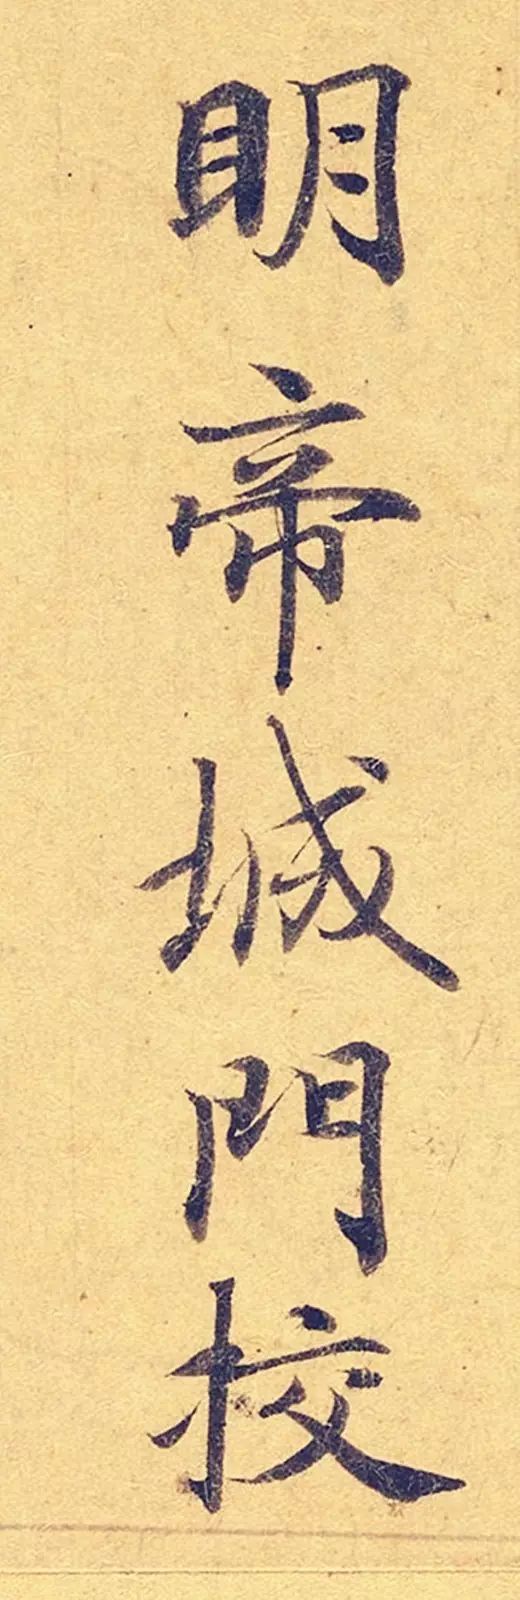 明帝城門校